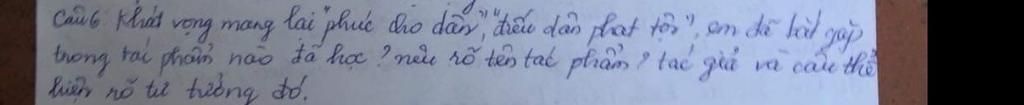 Câu 6 Khát vọng mang lại "phúc cho dân", "trừu dân phạt tội", em đã bắt gặp
trong tác phẩm nào đã học? nêu rõ tên tác phẩm? tác giả và câu thể
hiện rõ tư tưởng đó.